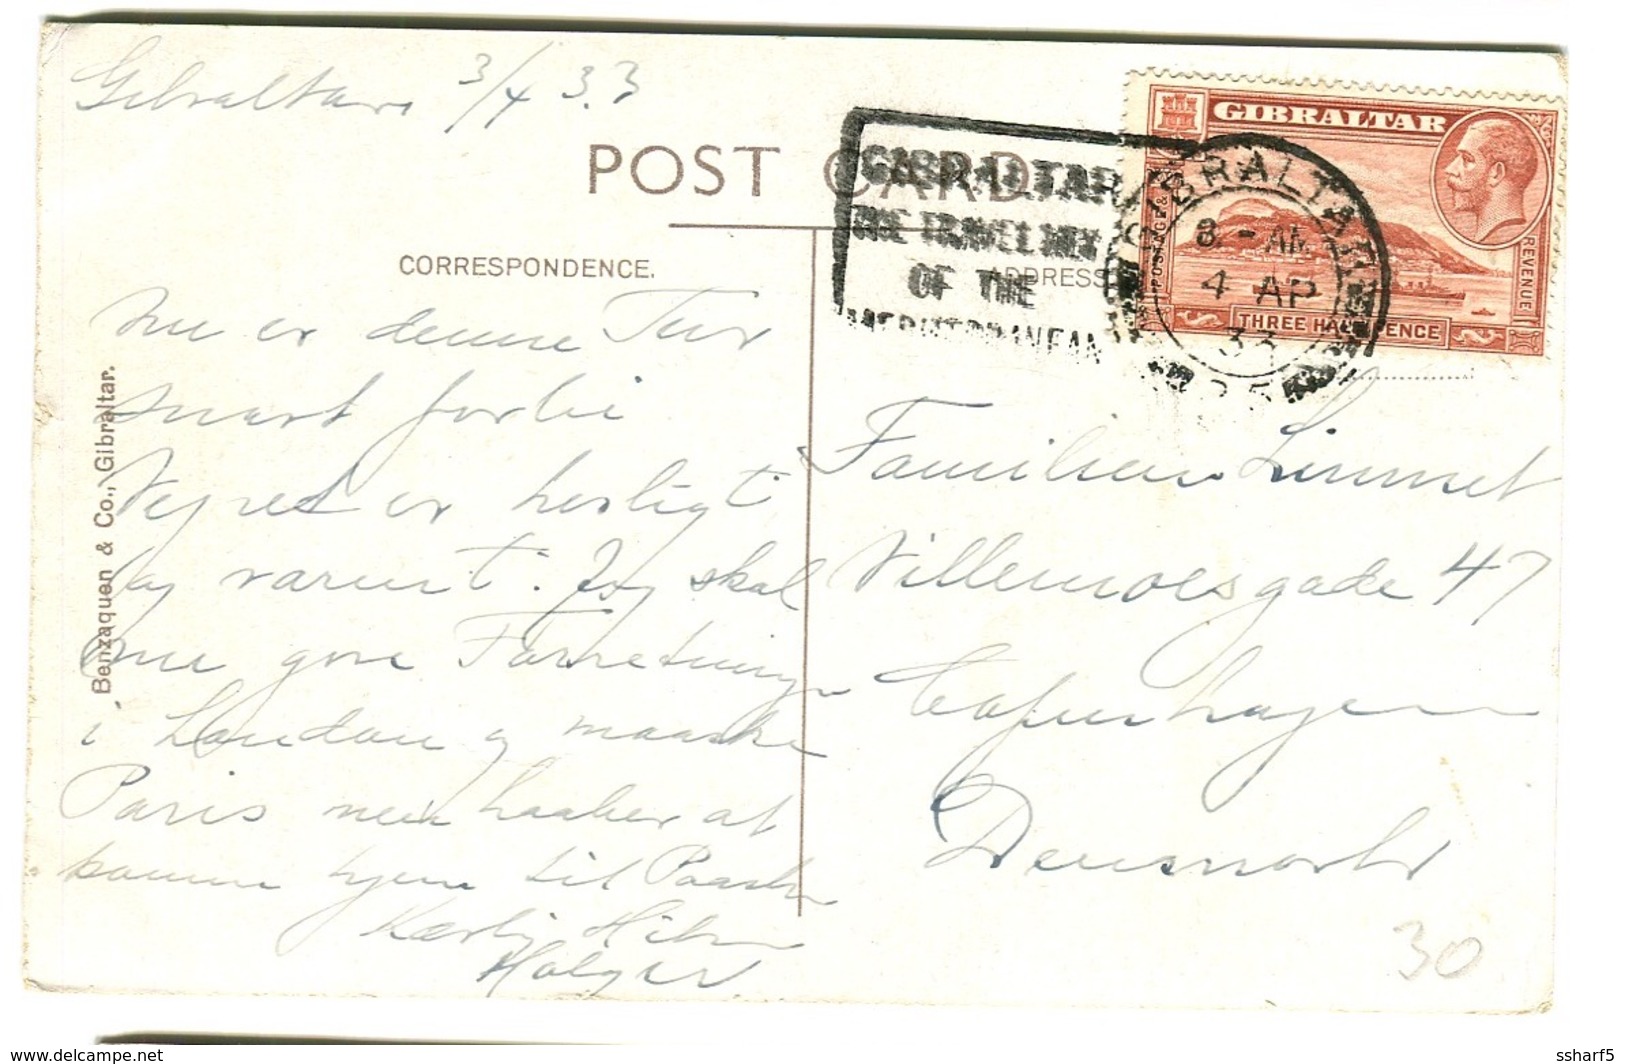 Gibraltar 3/4 33
POST CARD
GIBRALTAR
THE TRAVEL KEY
OF THE
MEDITERRANEAN
GIBRALTAR
8 - AM
4 AP
33
GIBRALTAR
POSTAGE &
REVENUE
THREE HALFPENCE
CORRESPONDENCE.
ADDRESS
Benzaquen & Co., Gibraltar.
Nu er denne Tur
snart forbi
Vejret er herligt
og varmt. Jeg skal
nu gøre Forretninger
i London og maaske
Paris men haaber at
komme hjem til Paaske
Kærlig Hilsen
Holger
Familien Limmet
Villemoesgade 47
Copenhagen
Denmark
30
ssharf5
http://www.delcampe.net